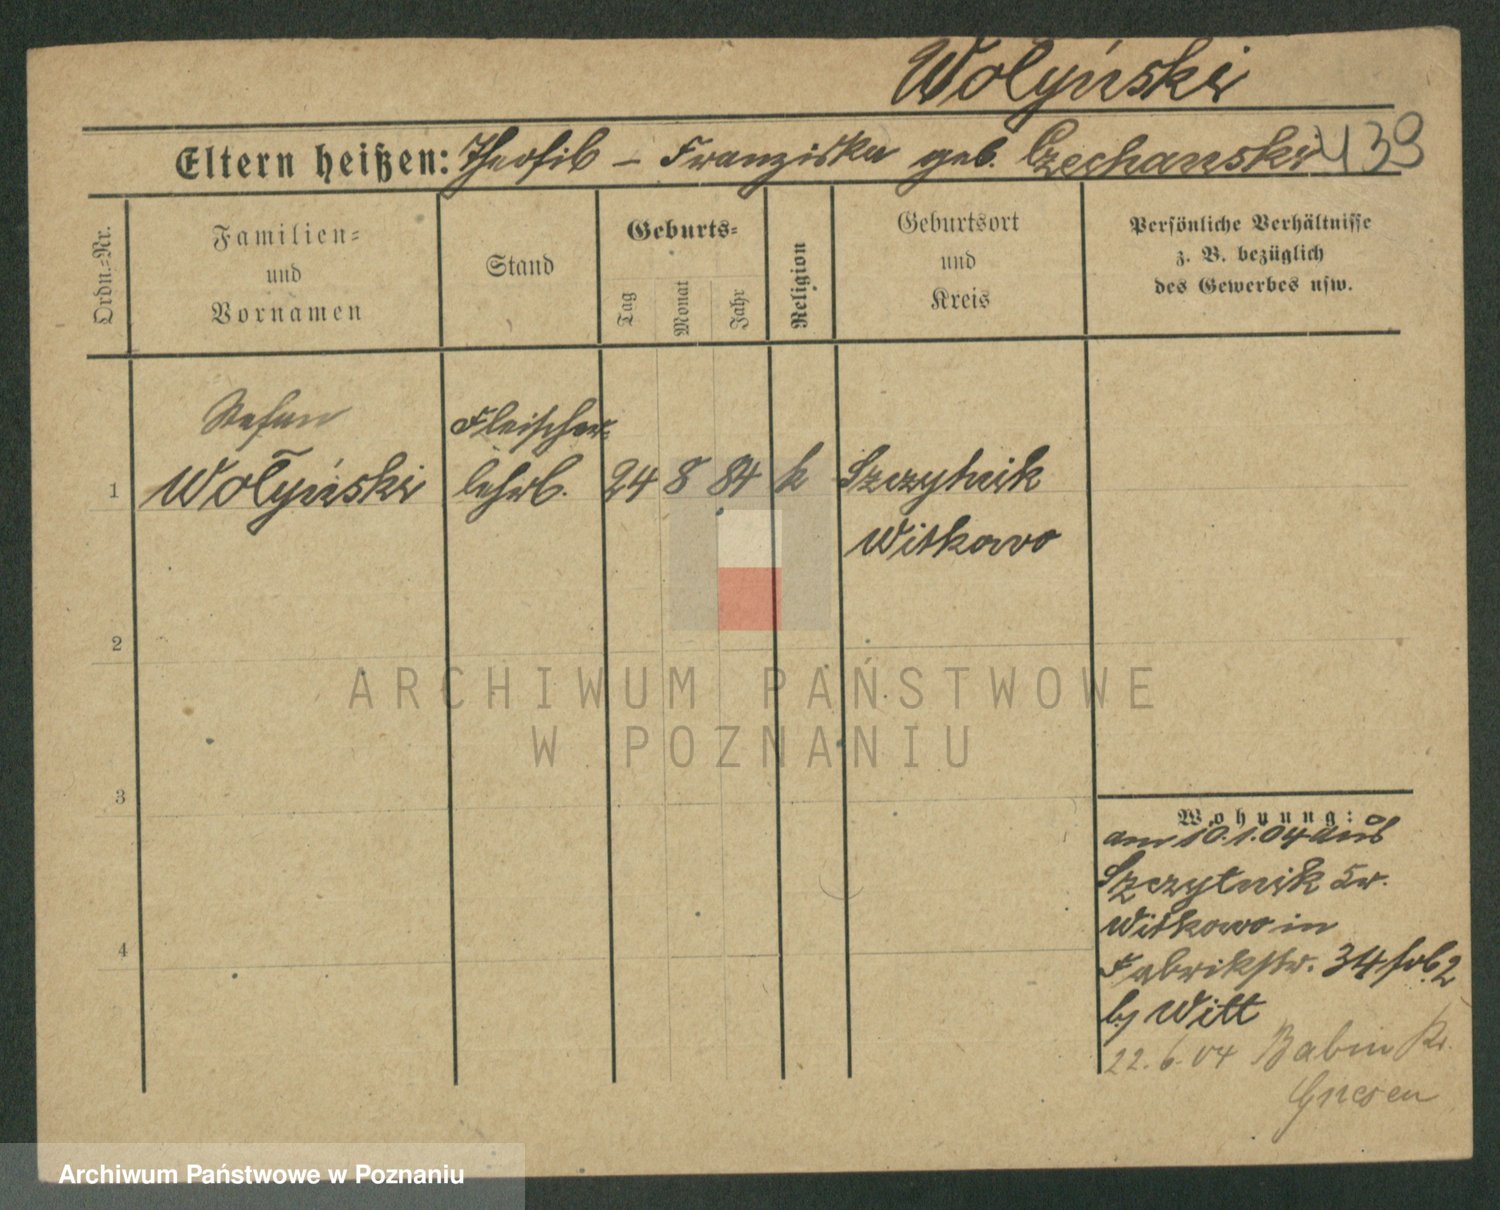 Wołyński
Eltern heißen: Theofil – Franziska geb. Czechanski 439
Ordn.=Nr.
Familien=
und
Vornamen
Stand
Geburts=
Tag
Monat
Jahr
Religion
Geburtsort
und
Kreis
Persönliche Verhältnisse
z. B. bezüglich
des Gewerbes usw.
Stefan
Fleischer-
1 Wołyński lehrl. 24 8 84 k Szczytnik
Witkowo
2
ARCHIWUM PAŃSTWOWE
W POZNANIU
3
Wohnung:
am 10.1.04 aus
Szczytnik Kr.
Witkowo in
4
Fabrikstr. 34 2
by Witt
22.6.04 Babin Kr.
Gnesen
Archiwum Państwowe w Poznaniu